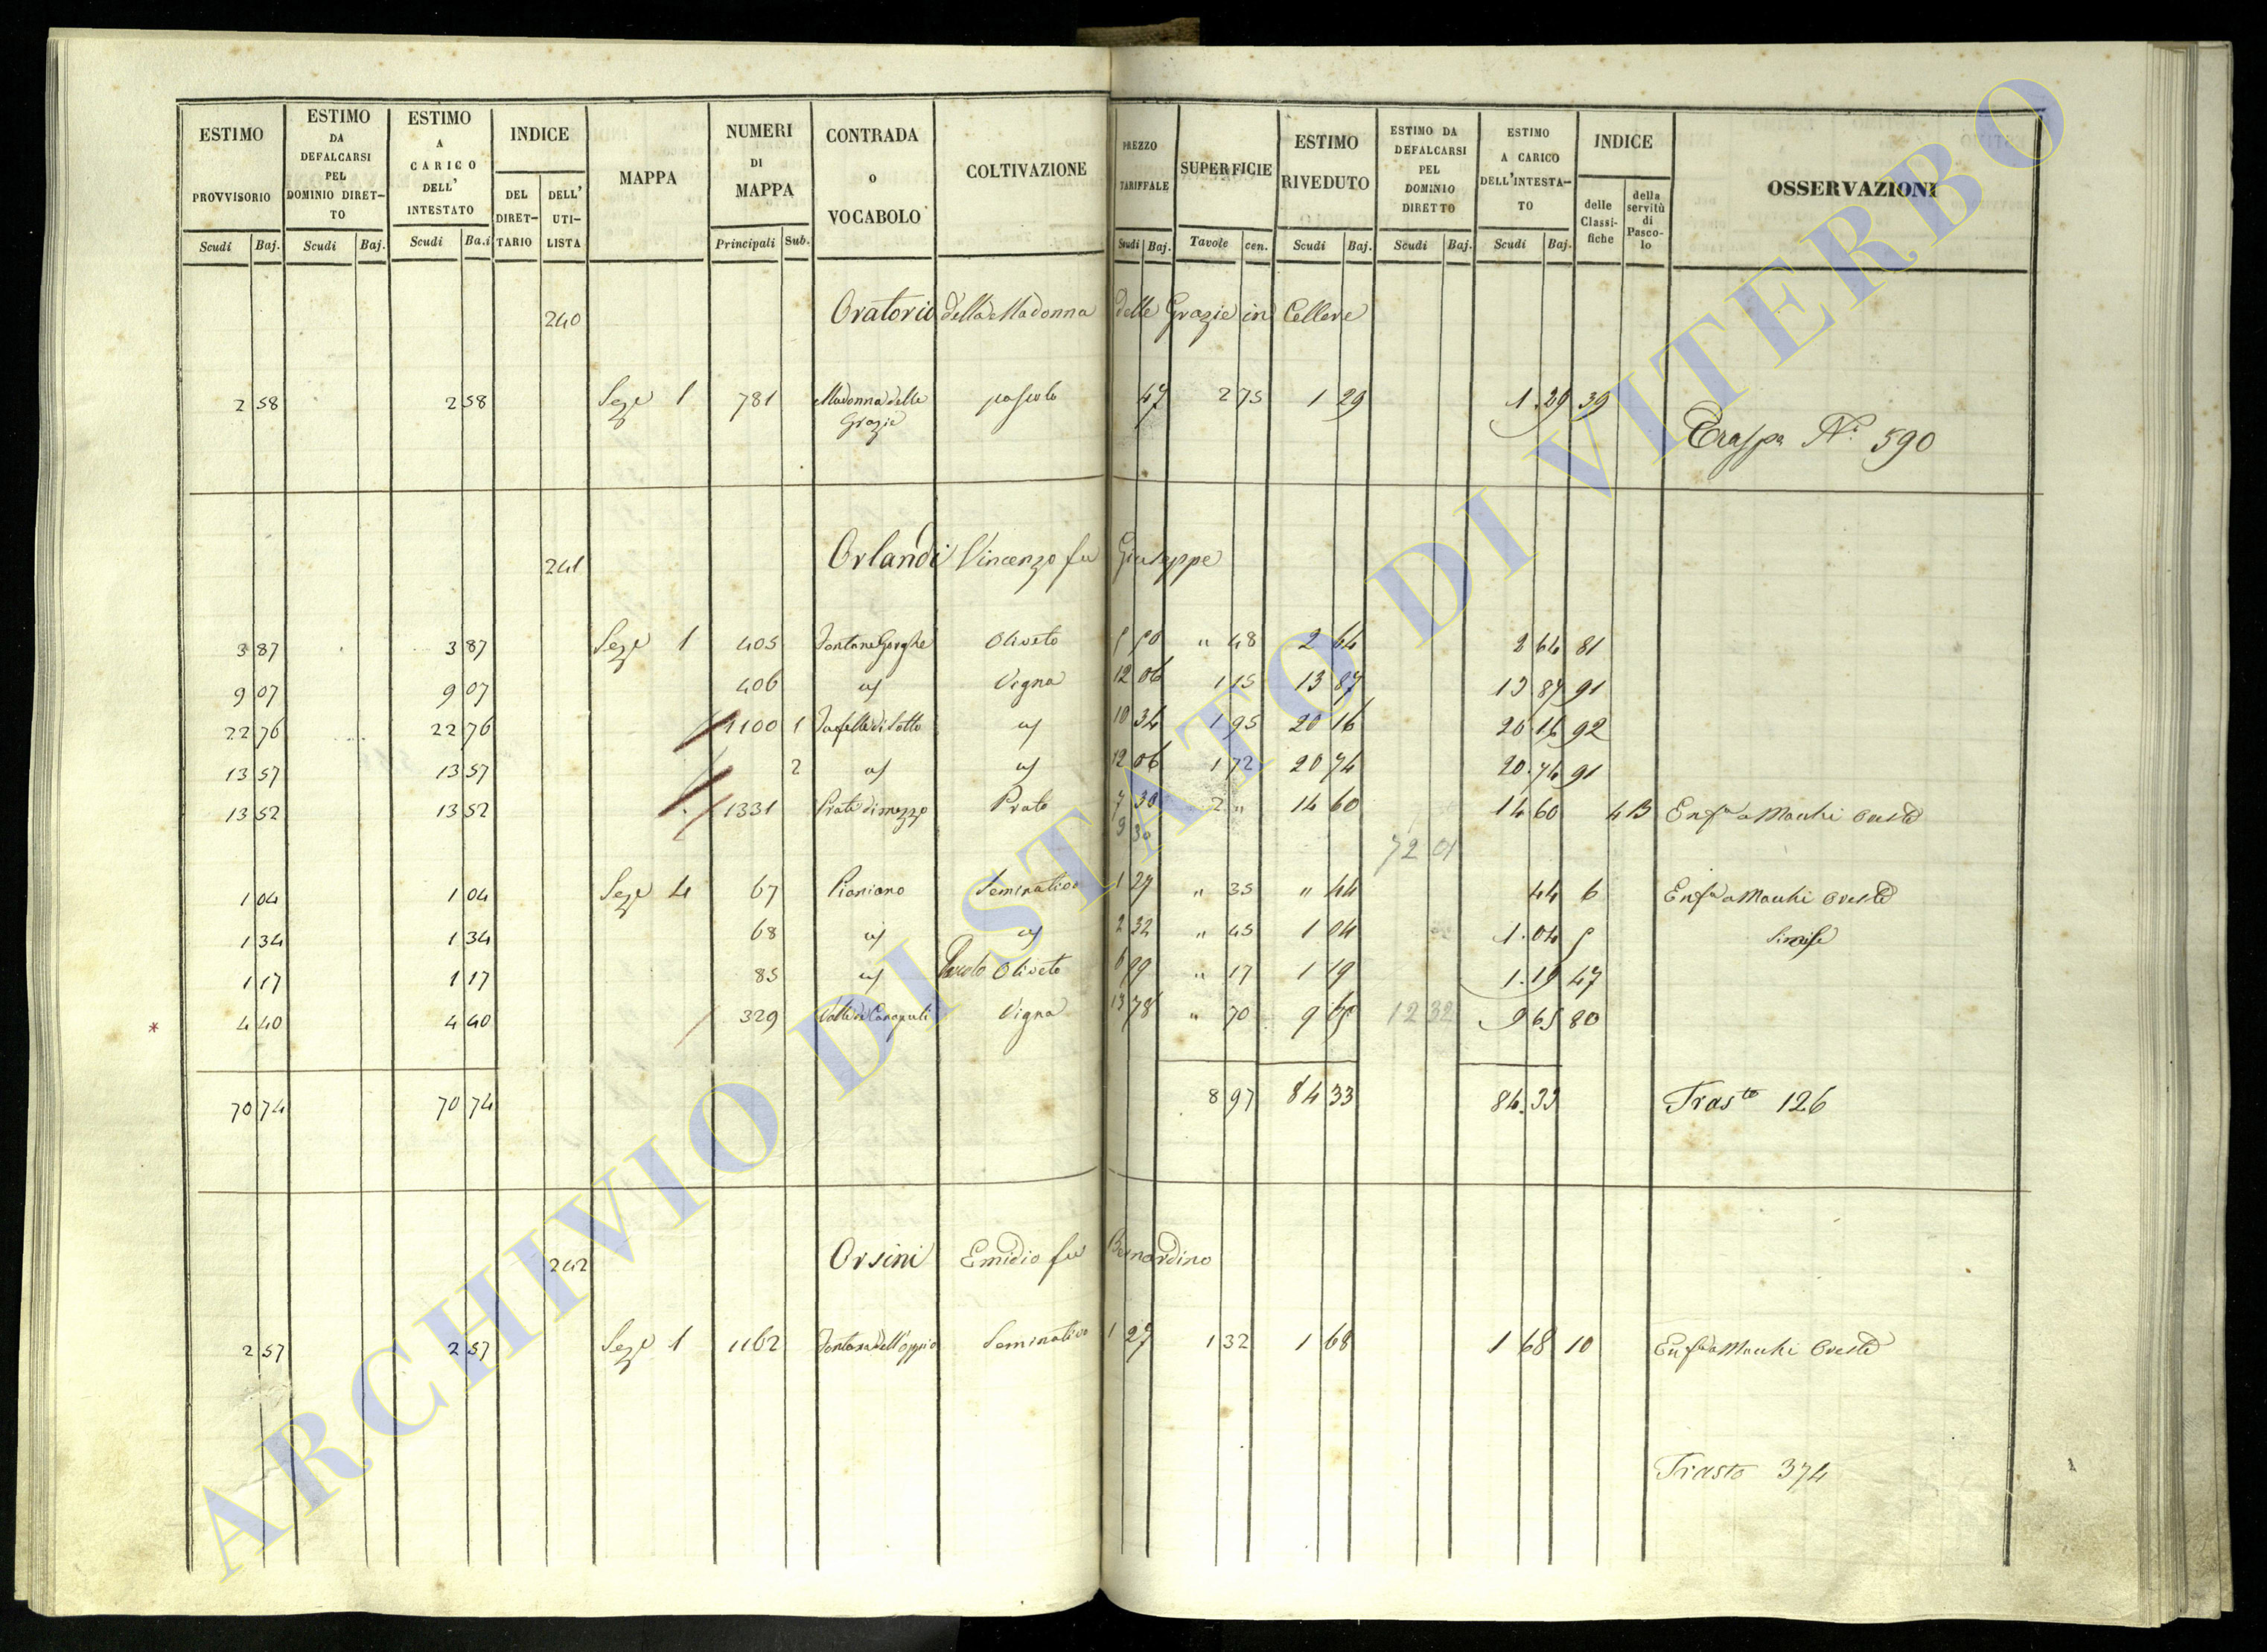 ESTIMO PROVVISORIO Scudi Baj.
ESTIMO DA DEFALCARSI PEL DOMINIO DIRET- TO Scudi Baj.
ESTIMO A CARICO DELL' INTESTATO Scudi Ba.i
INDICE DEL DIRET- TARIO DELL' UTI- LISTA
MAPPA
NUMERI DI MAPPA Principali Sub.
CONTRADA o VOCABOLO
COLTIVAZIONE
PREZZO TARIFFALE Scudi Baj.
SUPERFICIE Tavole cen.
ESTIMO RIVEDUTO Scudi Baj.
ESTIMO DA DEFALCARSI PEL DOMINIO DIRETTO Scudi Baj.
ESTIMO A CARICO DELL'INTESTA- TO Scudi Baj.
INDICE delle Classi- fiche della servitù di Pasco- lo
OSSERVAZIONI
240 Oratorio della Madonna delle Grazie in Cellere
2 58 2 58 Sez.e 1 781 Madonna delle Grazie pascolo 47 2 75 1 29 1.29 39
N.° 590
241 Orlandi Vincenzo fu Giuseppe
3 87 3 87 Sez.e 1 405 Fontane Gorghe Oliveto 5 50 " 48 2 64 2 64 81
9 07 9 07 406 Vigna 12 06 1 15 13 87 13.87 91
22 76 22 76 1100 1 di Sotto 10 34 1 95 20 16 20.16 92
13 57 13 57 2 12 06 1 72 20 74 20.74 91
13 52 13 52 1331 Prato di mezzo Prato 7 30 2 " 14 60 14 60 4 B Enf.a a Macchi Oreste
9 30
72 01
1 04 1 04 Sez.e 4 67 Pianiano Seminativo 1 27 " 35 " 44 44 6 Enf.a a Macchi Oreste
1 34 1 34 68 2 32 " 45 1 04 1.04 5 Simile
1 17 1 17 85 Oliveto 6 99 " 17 1 19 1.19 47
* 4 40 4 40 329 Valle di Canapuli Vigna 13 78 " 70 9 65 12 32 9 65 80
70 74 70 74 8 97 84 33 84.33 Tras.to 126
242 Orsini Emidio fu Bernardino
2 57 2 57 Sez.e 1 1162 Fontana dell'oppio Seminativo 1 27 1 32 1 68 1 68 10 Enf.a a Macchi Oreste
Trasto 374
ARCHIVIO DI STATO DI VITERBO